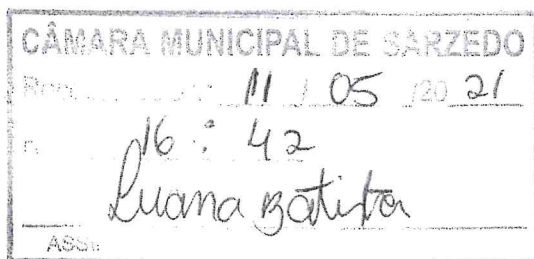 CÂMARA MUNICIPAL DE SARZEDO
11 / 05 /20 21
16 : 42
Luana Batista
ASS.: